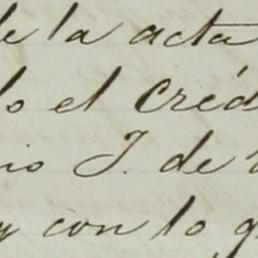 de la acta
lo el Créd
io J. de
y con lo q